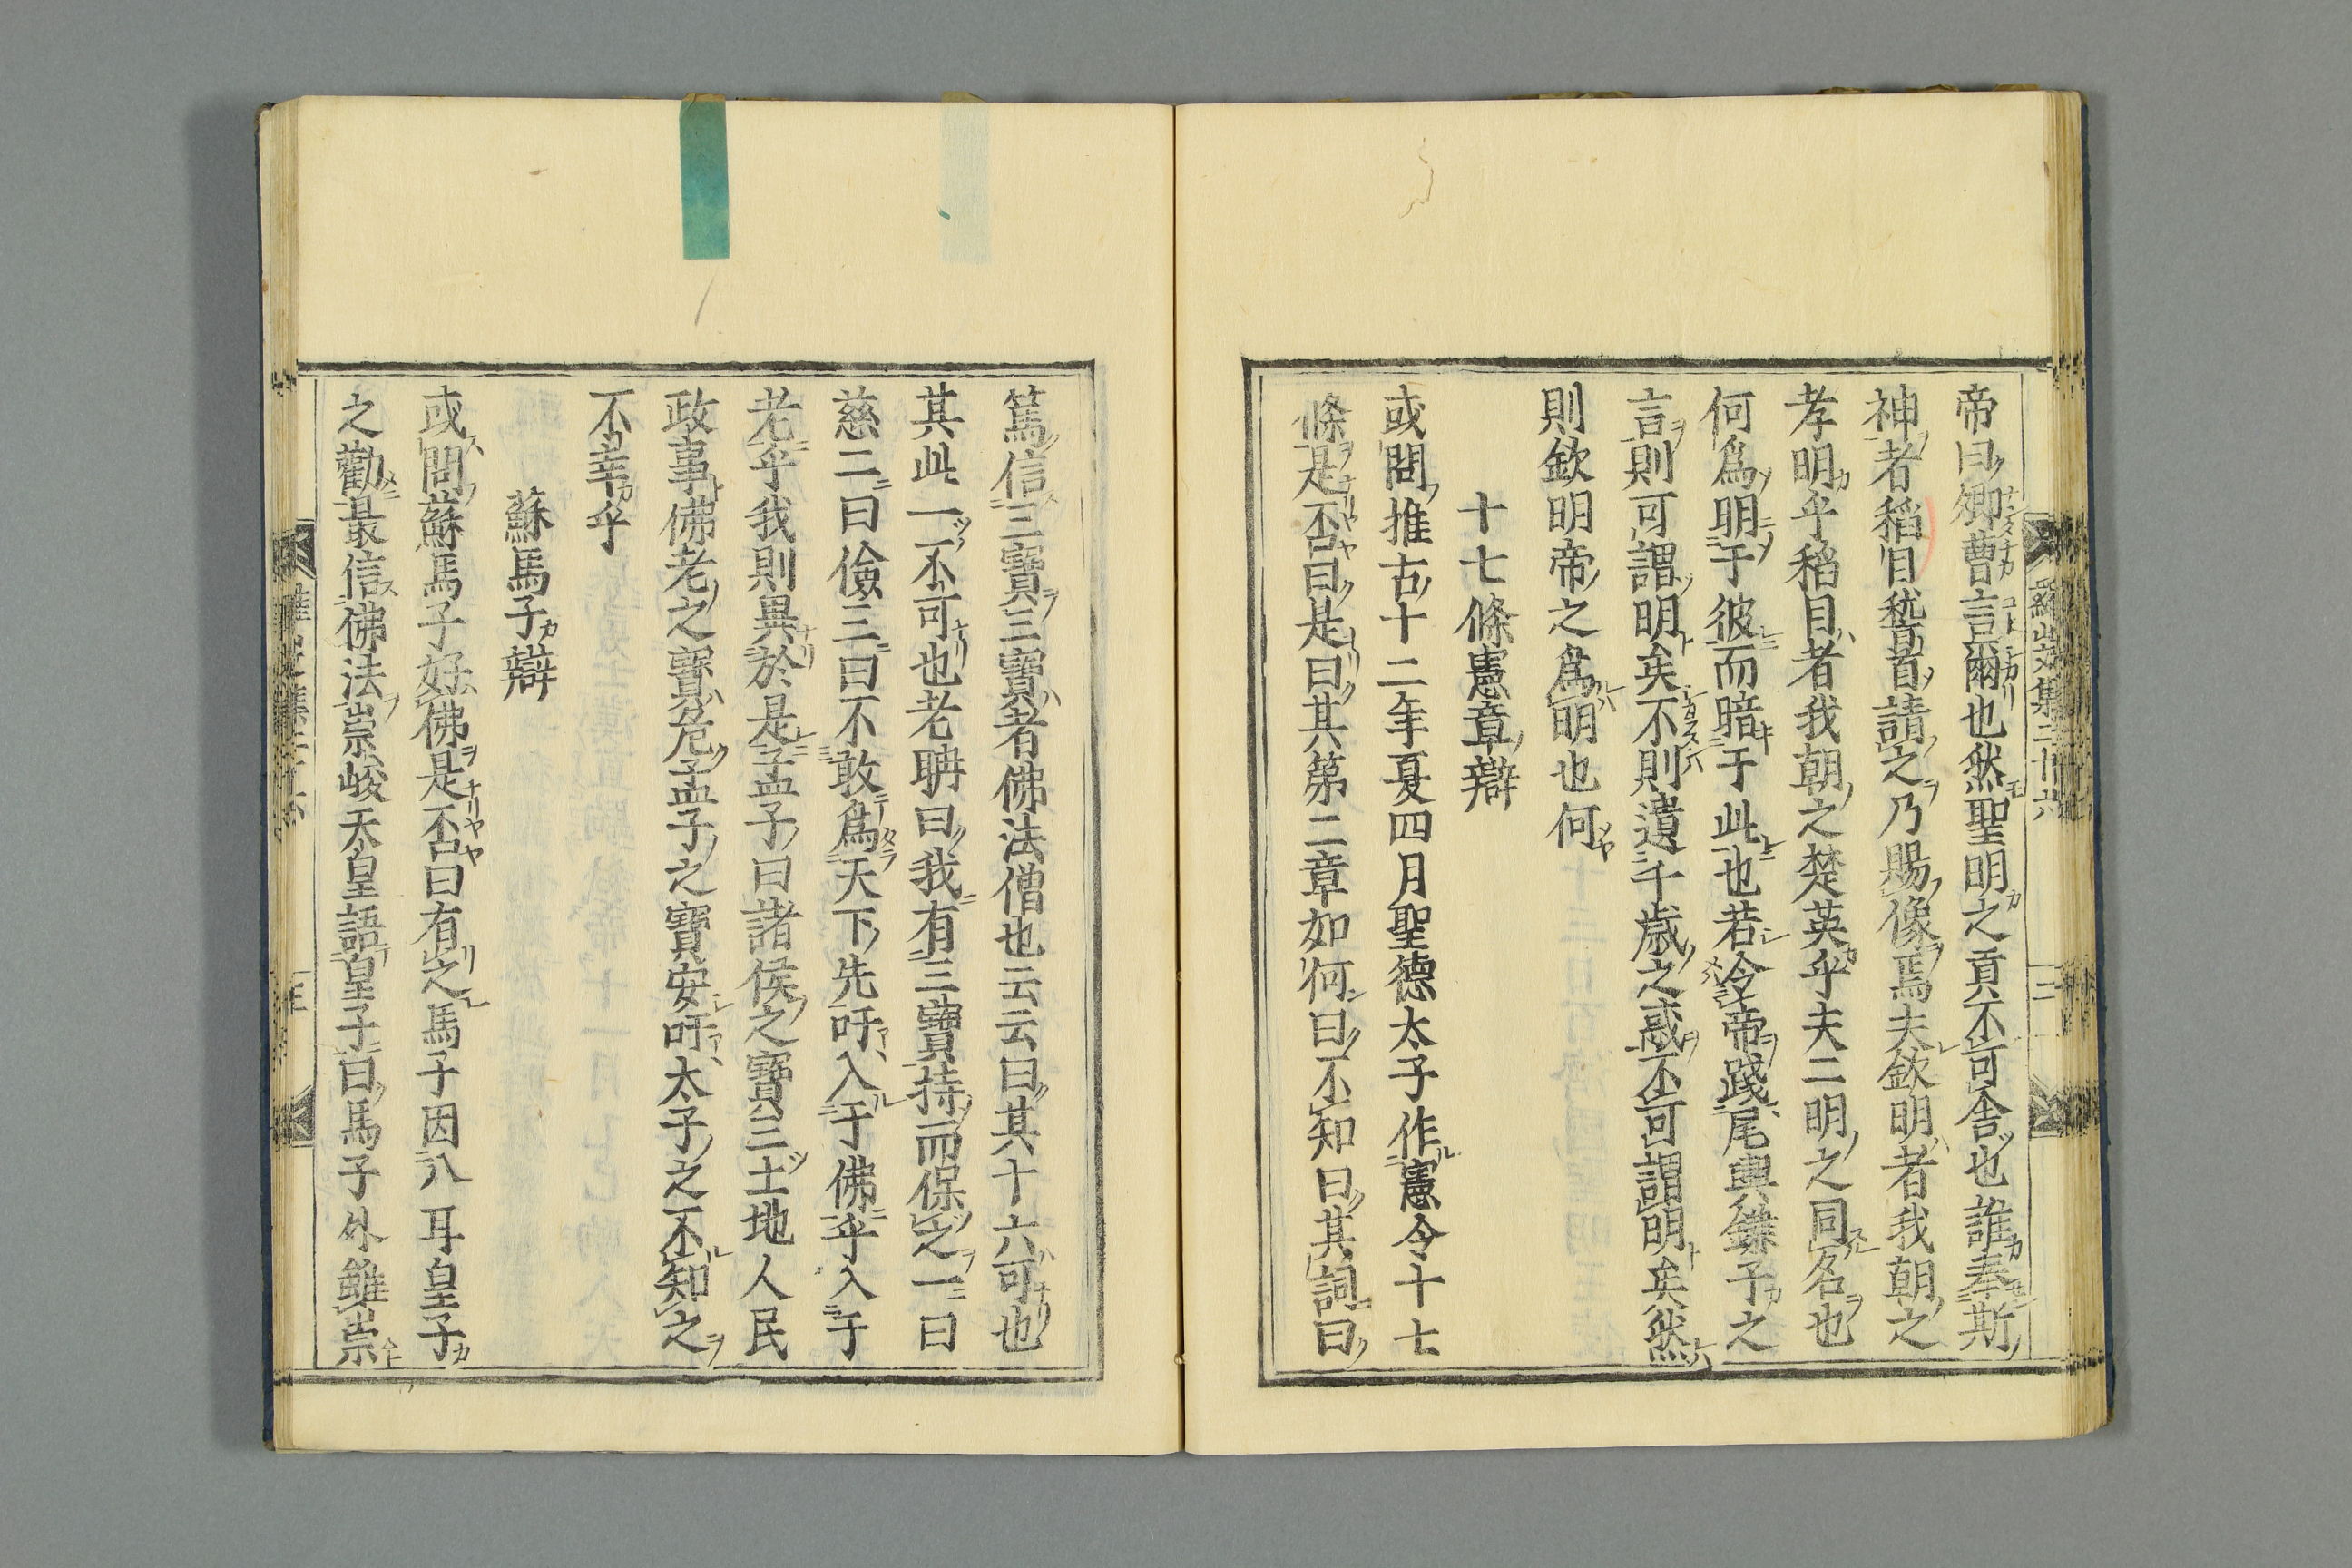 羅山文集二十六 三
帝曰卿曹言爾也然聖明之貢不可舎也誰奉斯
神者稻目稽首請之乃賜像焉夫欽明者我朝之
孝明乎稻目者我朝之楚英乎夫二明之同名也
何爲明于彼而暗于此也若令帝踐尾輿鎌子之
言則可謂明矣不則遺千歳之惑不可謂明矣然
則欽明帝之爲明也何
十七條憲章辯
或問推古十二年夏四月聖德太子作憲令十七
條是否曰是曰其第二章如何曰不知曰其詞曰
篤信三寶三寶者佛法僧也云云曰其十六可也
其此一不可也老聃曰我有三寶持而保之一曰
慈二曰儉三曰不敢爲天下先吁入于佛乎入于
老乎我則異於是孟子曰諸侯之寶三土地人民
政事佛老之寶危孟子之寶安吁太子之不知之
不幸乎
蘇馬子辯
或問蘇馬子好佛是否曰有之馬子因八耳皇子
之勸最信佛法崇峻天皇語皇子曰馬子外雖崇